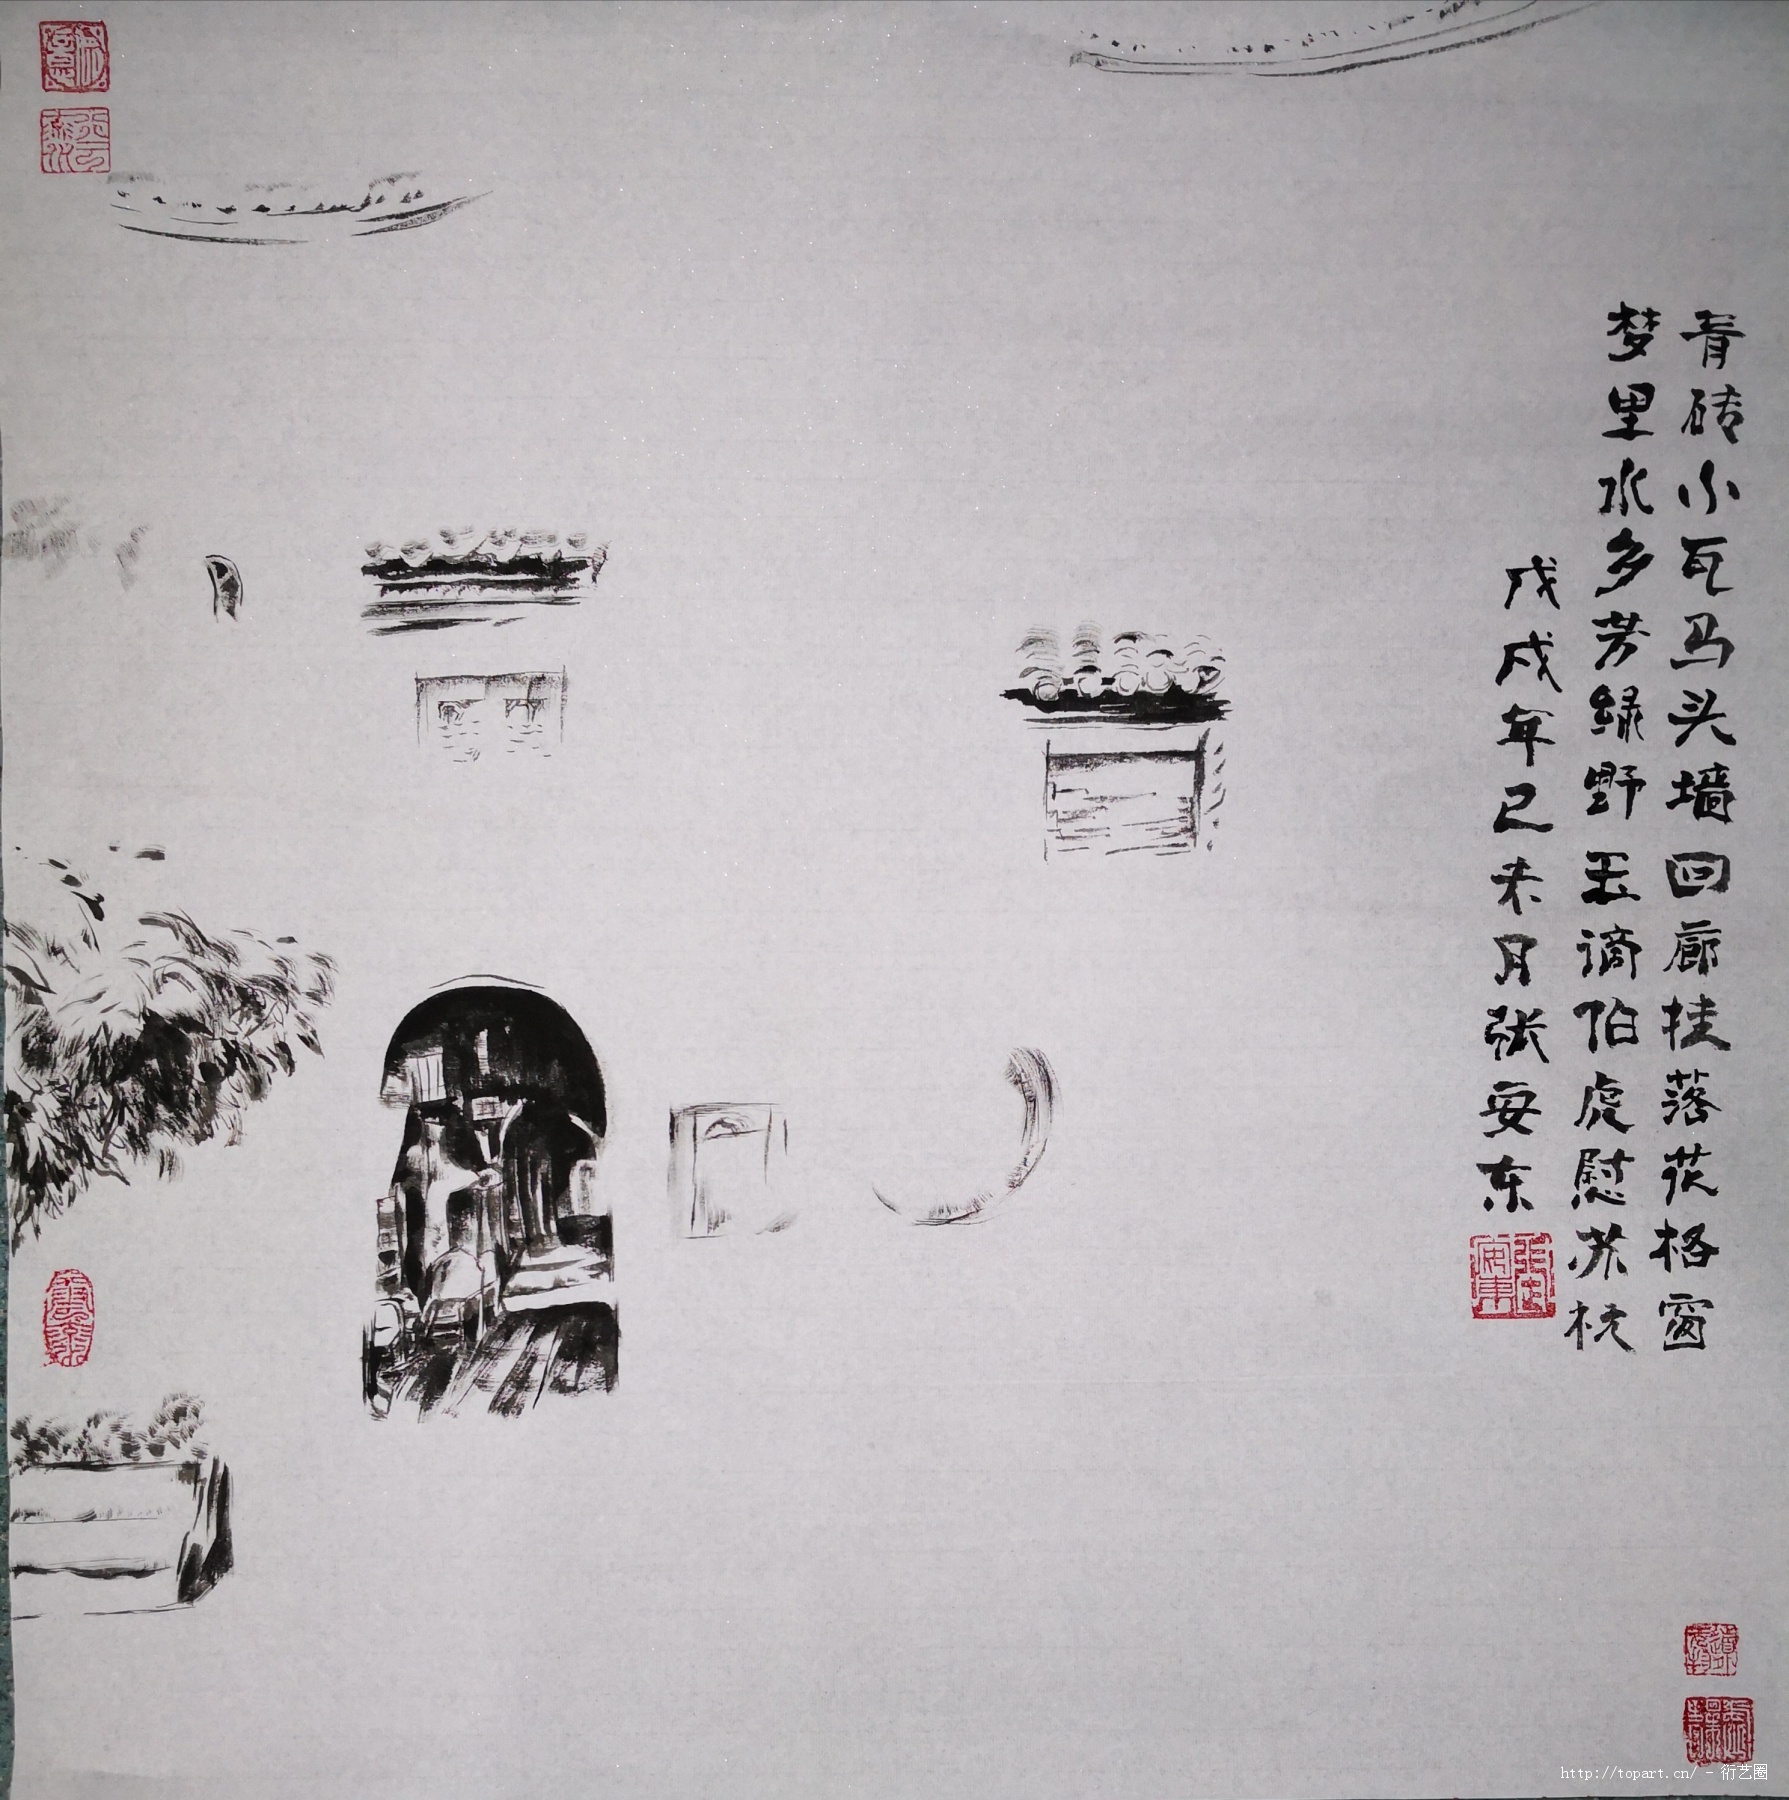 青砖小瓦马头墙回廊挂落花格窗
梦里水乡芳绿野玉谪伯虎慰苏杭
戊戌年己未月张安东
http://topart.cn/ - 衍艺圈